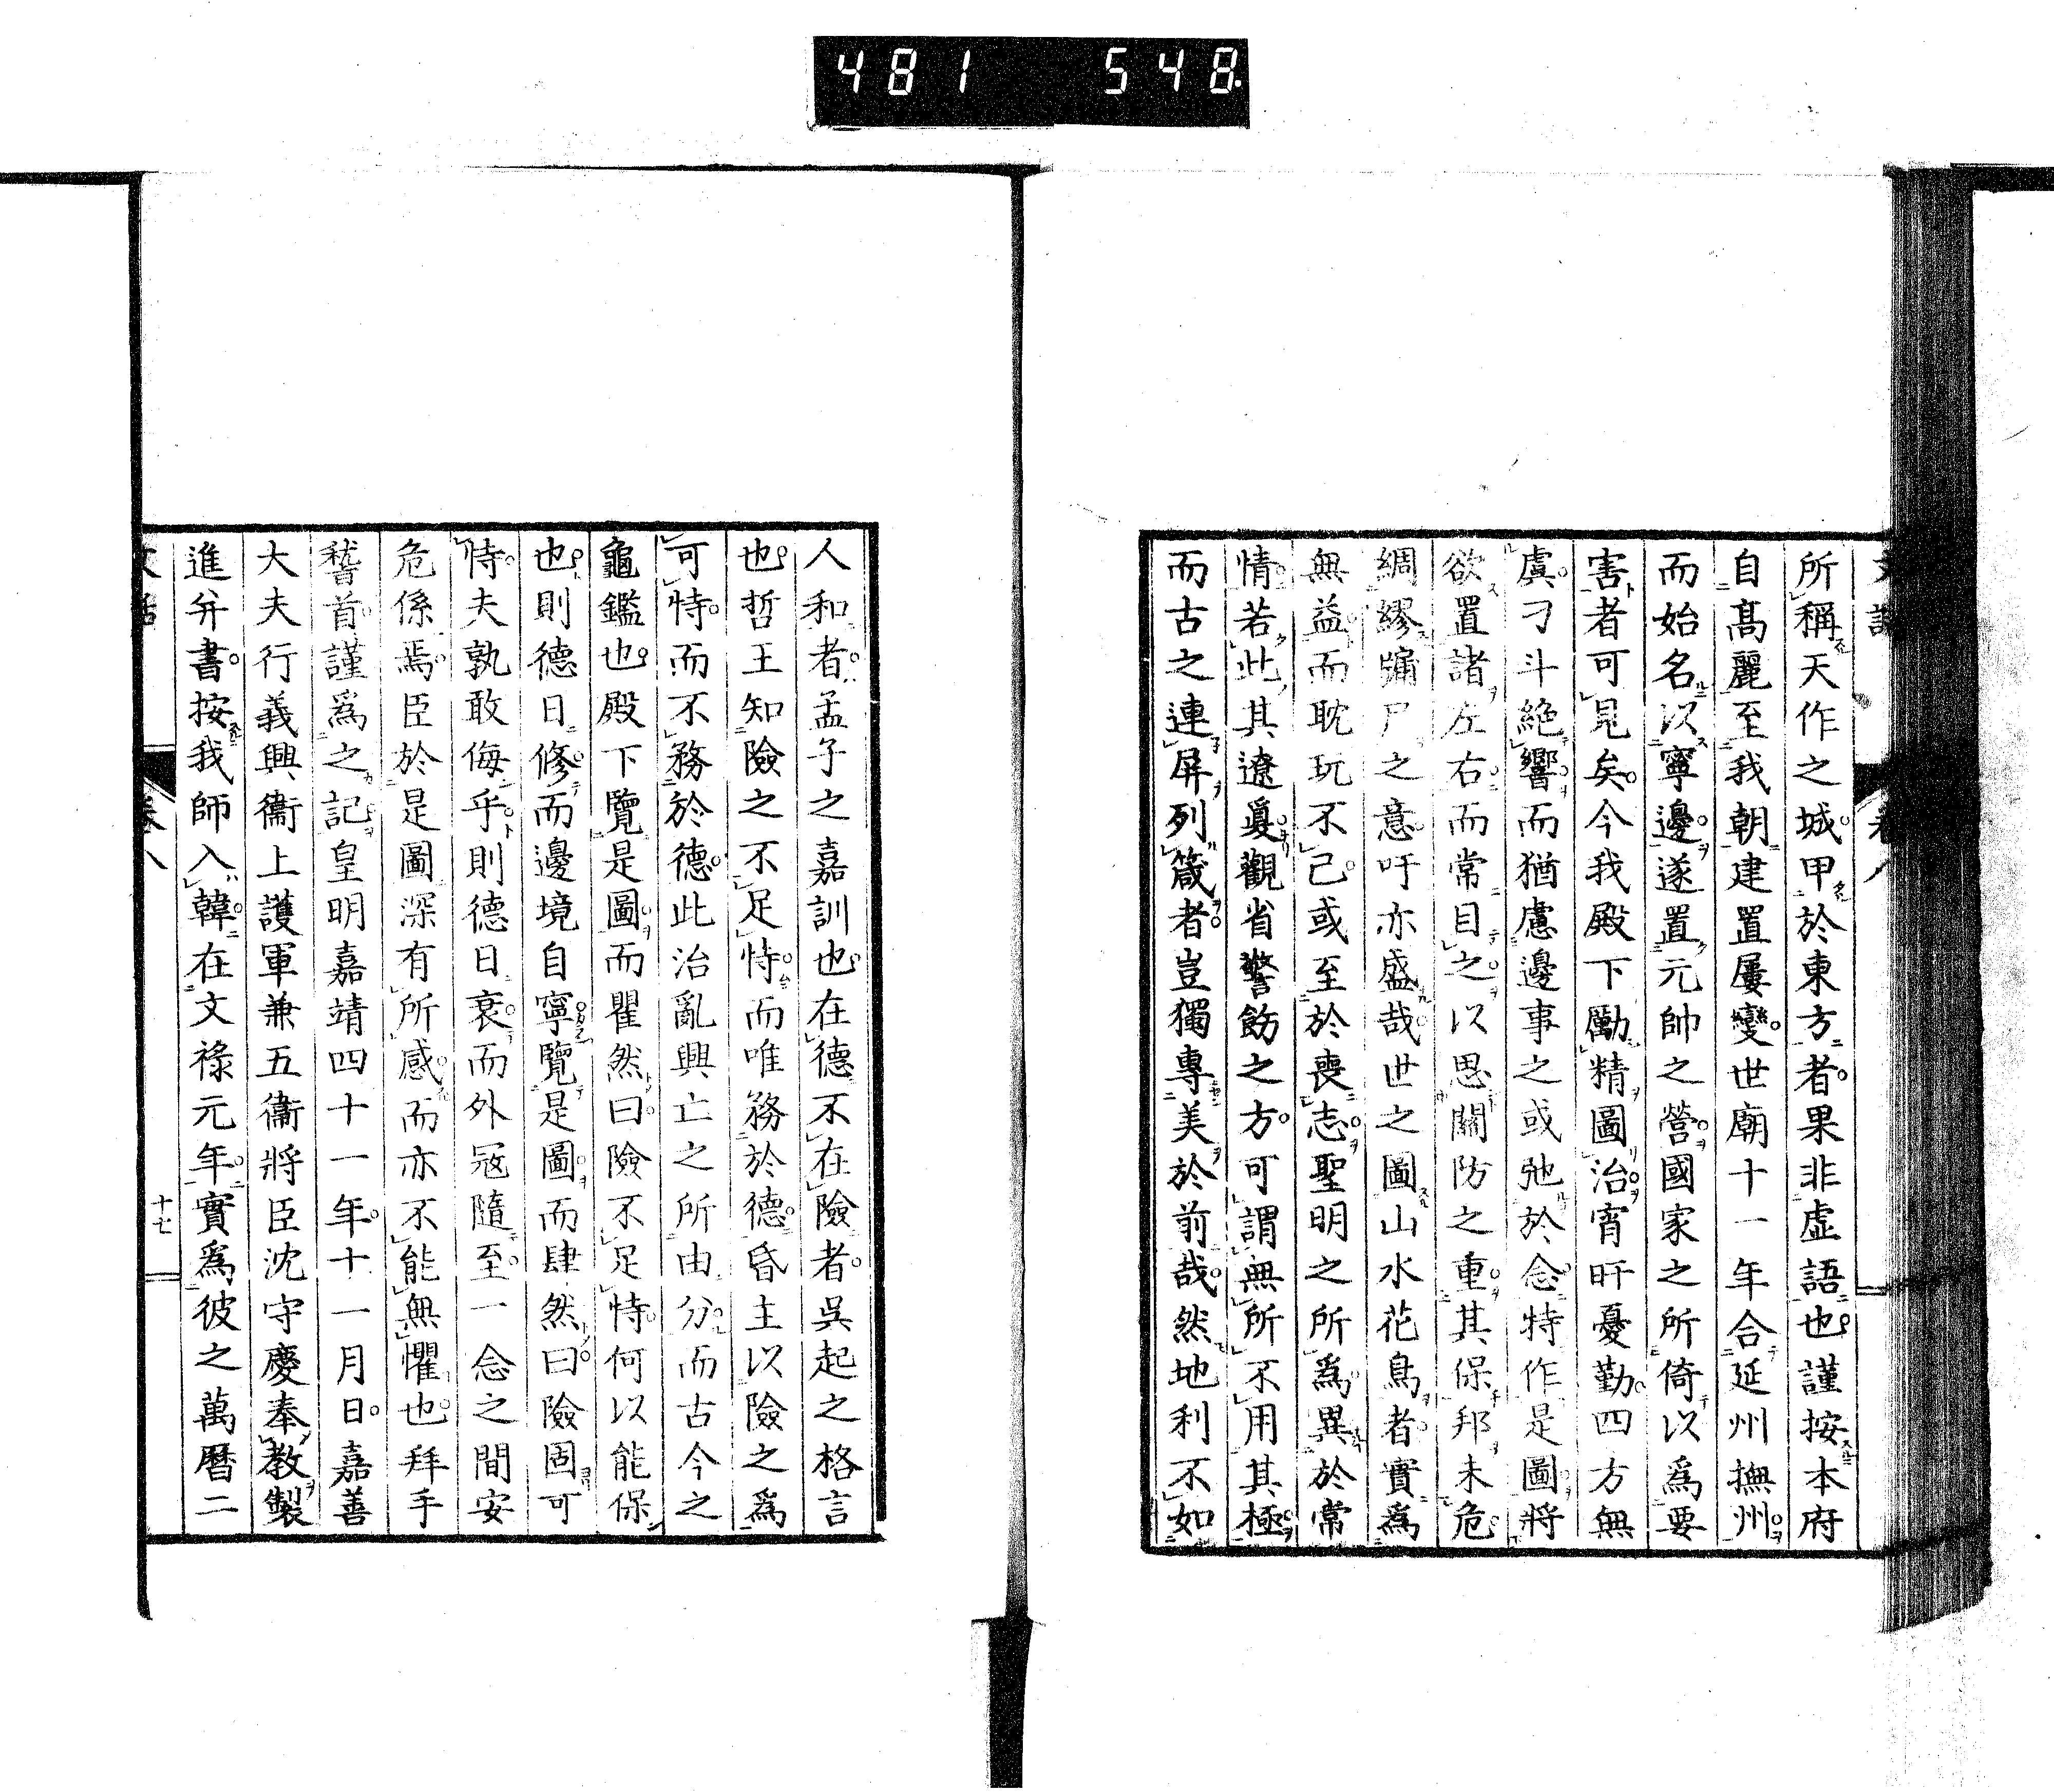 481 548.
所稱天作之城甲於東方者果非虛語也謹按本府
自高麗至我朝建置屢變世廟十一年合延州撫州
而始名以寧邊遂置元帥之營國家之所倚以爲要
害者可見矣今我殿下勵精圖治宵旰憂勤四方無
虞刁斗絕響而猶慮邊事之或弛於念特作是圖將
欲置諸左右而常目之以思關防之重其保邦未危
綢繆牖戶之意吁亦盛哉世之圖山水花鳥者實爲
無益而耽玩不已或至於喪志聖明之所爲異於常
情若此其遼夐觀省警飭之方可謂無所不用其極
而古之連屛列箴者豈獨專美於前哉然地利不如
人和者孟子之嘉訓也在德不在險者吳起之格言
也哲王知險之不足恃而唯務於德昏主以險之爲
可恃而不務於德此治亂興亡之所由分而古今之
龜鑑也殿下覽是圖而瞿然曰險不足恃何以能保
也則德日修而邊境自寧覽是圖而肆然曰險固可
恃夫孰敢侮乎則德日衰而外冦隨至一念之間安
危係焉臣於是圖深有所感而亦不能無懼也拜手
稽首謹爲之記皇明嘉靖四十一年十一月日嘉善
大夫行義興衞上護軍兼五衞將臣沈守慶奉教製
進幷書按我師入韓在文祿元年實爲彼之萬曆二
卷八
十七